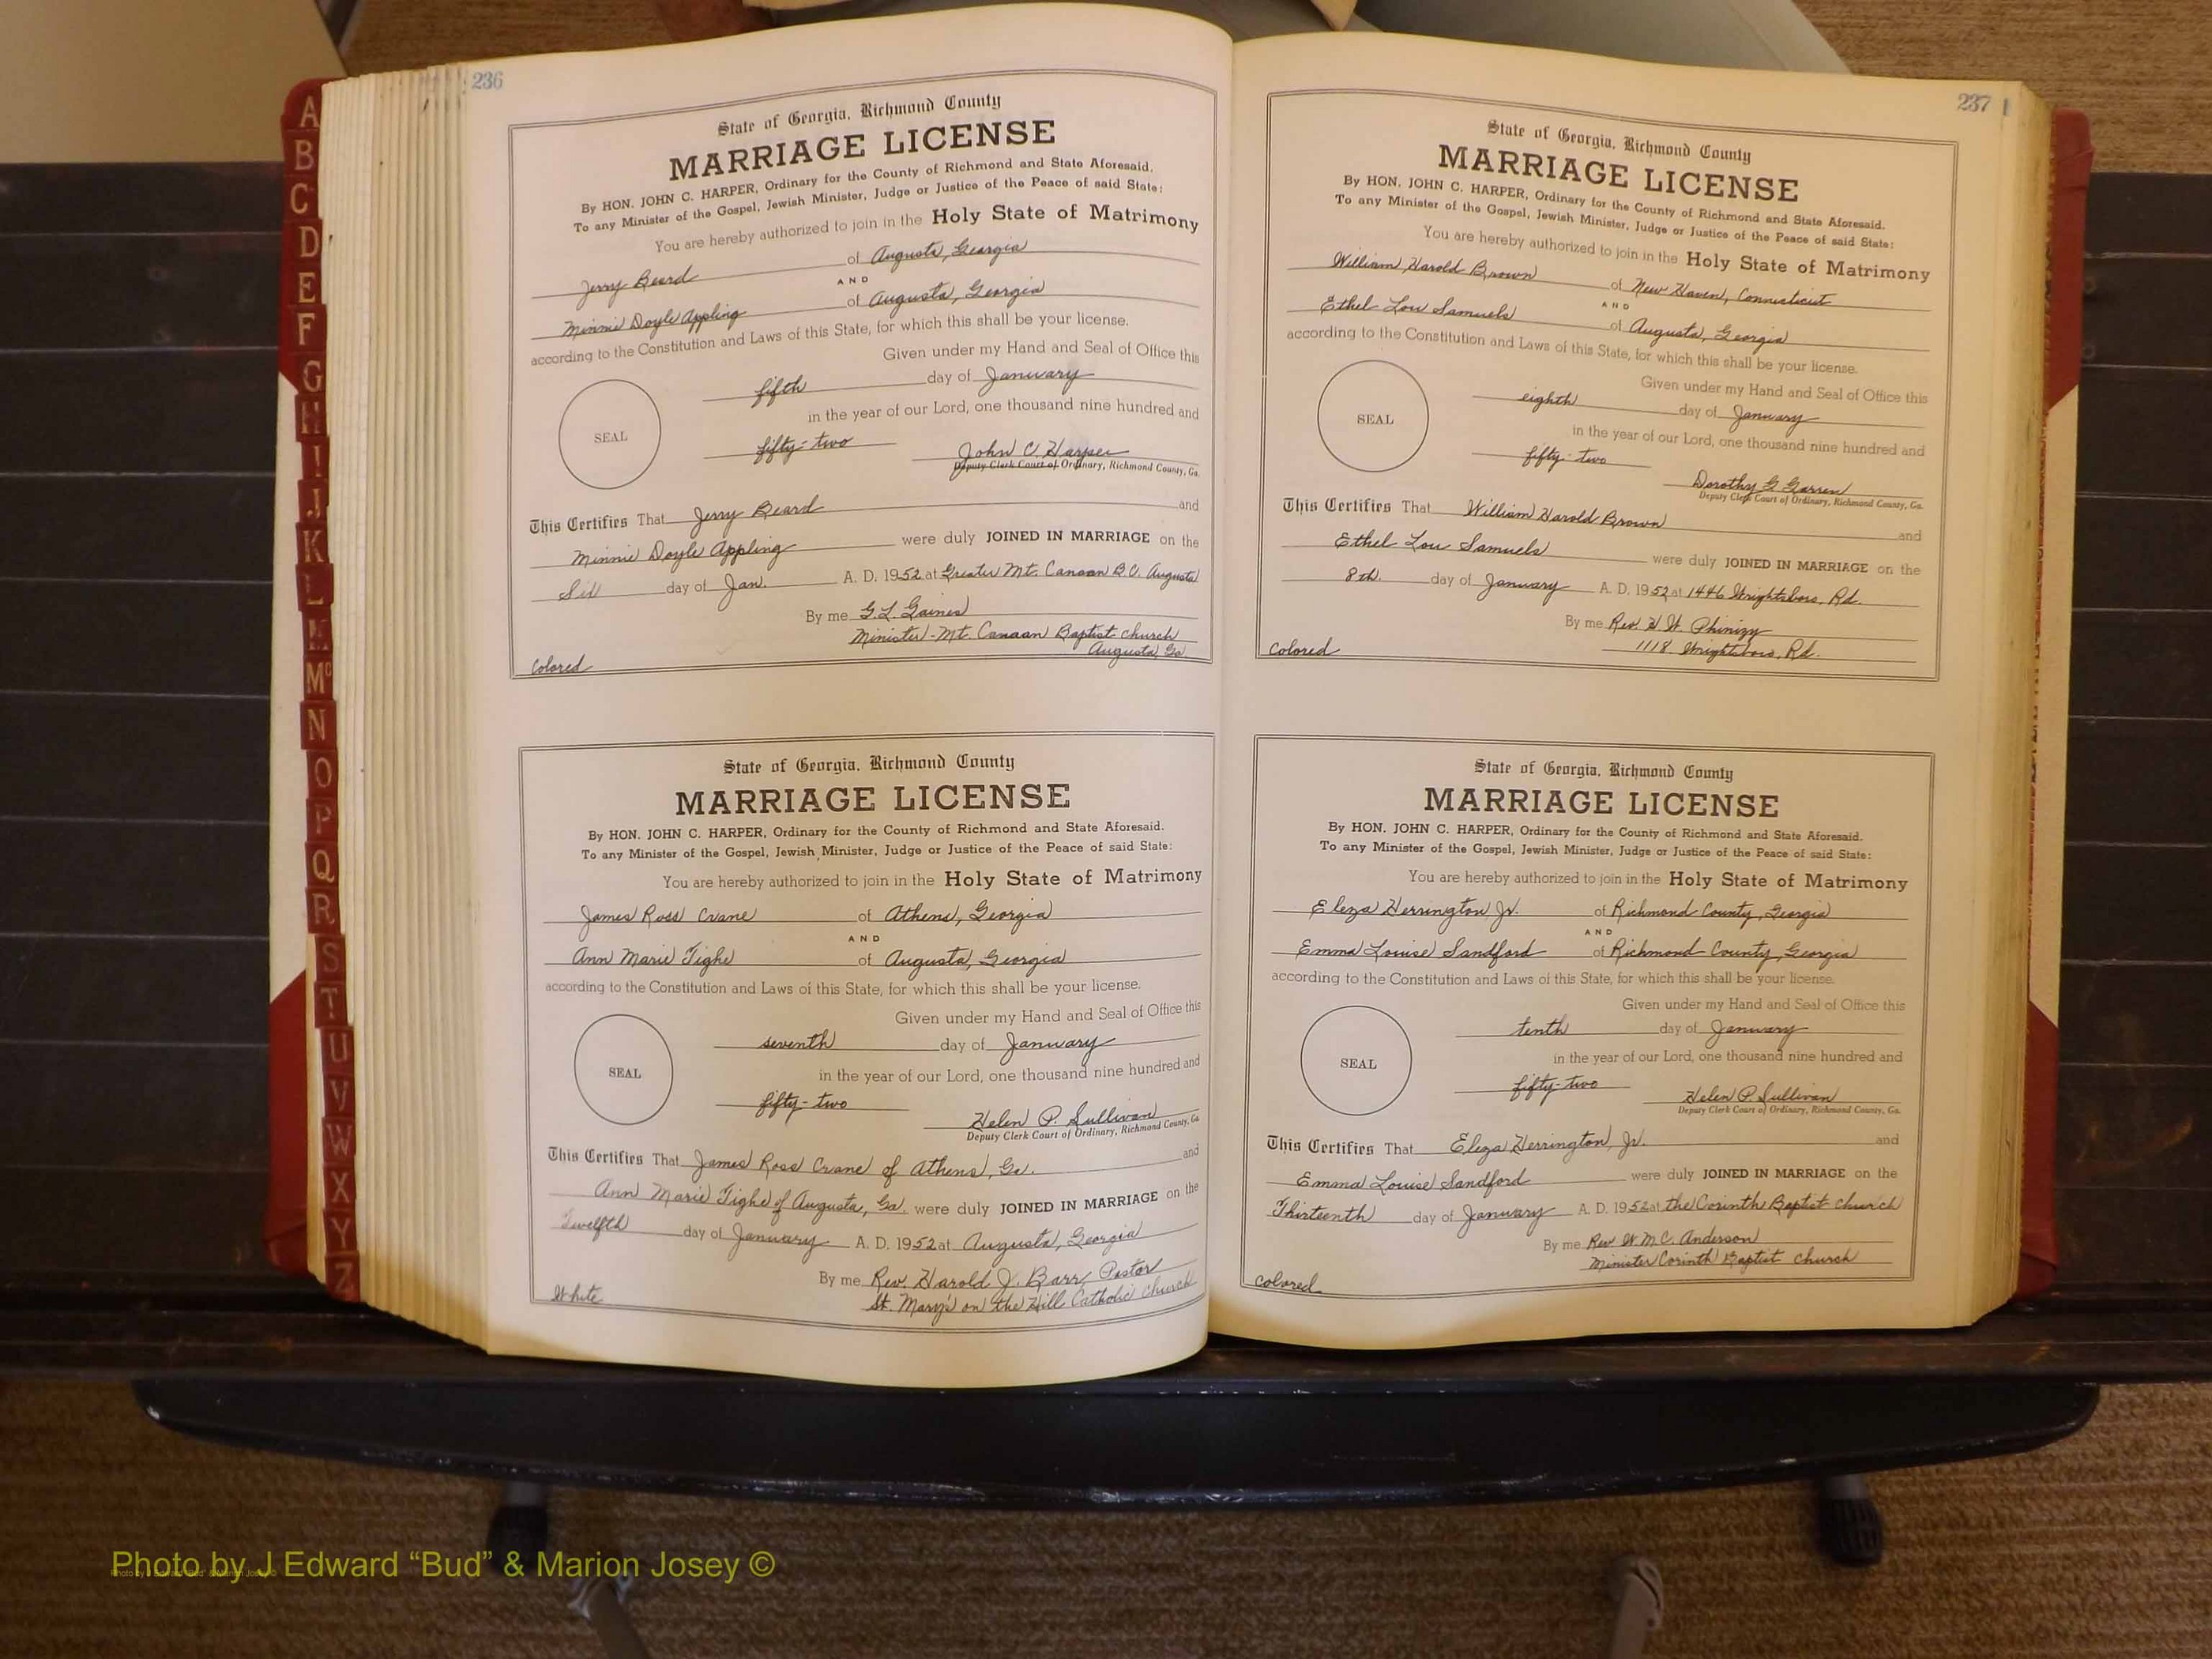 A
B
C
D
E
F
G
H
I
J
K
L
M
Mc
N
O
P
Q
R
S
T
U
V
W
X
Y
Z
236
State of Georgia, Richmond County
MARRIAGE LICENSE
By HON. JOHN C. HARPER, Ordinary for the County of Richmond and State Aforesaid.
To any Minister of the Gospel, Jewish Minister, Judge or Justice of the Peace of said State:
You are hereby authorized to join in the Holy State of Matrimony
Jerry Beard of Augusta, Georgia
AND
Minnie Doyle Appling of Augusta, Georgia
according to the Constitution and Laws of this State, for which this shall be your license.
Given under my Hand and Seal of Office this
fifth day of January
in the year of our Lord, one thousand nine hundred and
SEAL
fifty-two John C. Harper
Deputy Clerk Court of Ordinary, Richmond County, Ga.
This Certifies That Jerry Beard and
Minnie Doyle Appling were duly JOINED IN MARRIAGE on the
day of Jan. A. D. 1952 at Greater Mt. Canaan B.C. Augusta
By me G.L. Gaines
Minister-Mt. Canaan Baptist church
Augusta, Ga.
Colored
State of Georgia, Richmond County
MARRIAGE LICENSE
By HON. JOHN C. HARPER, Ordinary for the County of Richmond and State Aforesaid.
To any Minister of the Gospel, Jewish Minister, Judge or Justice of the Peace of said State:
You are hereby authorized to join in the Holy State of Matrimony
James Ross Crane of Athens, Georgia
AND
Ann Marie Tighe of Augusta, Georgia
according to the Constitution and Laws of this State, for which this shall be your license.
Given under my Hand and Seal of Office this
seventh day of January
SEAL
in the year of our Lord, one thousand nine hundred and
fifty-two Helen P. Sullivan
Deputy Clerk Court of Ordinary, Richmond County, Ga.
This Certifies That James Ross Crane of Athens, Ga. and
Ann Marie Tighe of Augusta, Ga. were duly JOINED IN MARRIAGE on the
Twelfth day of January A. D. 1952 at Augusta, Georgia
By me Rev. Harold J. Barr, Pastor
St. Mary's on the Hill Catholic church
White
237
State of Georgia, Richmond County
MARRIAGE LICENSE
By HON. JOHN C. HARPER, Ordinary for the County of Richmond and State Aforesaid.
To any Minister of the Gospel, Jewish Minister, Judge or Justice of the Peace of said State:
You are hereby authorized to join in the Holy State of Matrimony
William Harold Brown of New Haven, Connecticut
AND
Ethel Lou Samuels of Augusta, Georgia
according to the Constitution and Laws of this State, for which this shall be your license.
Given under my Hand and Seal of Office this
eighth day of January
SEAL
in the year of our Lord, one thousand nine hundred and
fifty-two Dorothy G Garren
Deputy Clerk Court of Ordinary, Richmond County, Ga.
This Certifies That William Harold Brown and
Ethel Lou Samuels were duly JOINED IN MARRIAGE on the
8th. day of January A. D. 1952 at 1446 Wrightsboro, Rd.
By me Rev. H. W. Phinizy
1118 Wrightsboro, Rd.
Colored
State of Georgia, Richmond County
MARRIAGE LICENSE
By HON. JOHN C. HARPER, Ordinary for the County of Richmond and State Aforesaid.
To any Minister of the Gospel, Jewish Minister, Judge or Justice of the Peace of said State:
You are hereby authorized to join in the Holy State of Matrimony
Eleza Herrington Jr. of Richmond County, Georgia
AND
Emma Louise Sandford of Richmond County, Georgia
according to the Constitution and Laws of this State, for which this shall be your license.
Given under my Hand and Seal of Office this
tenth day of January
SEAL
in the year of our Lord, one thousand nine hundred and
fifty-two Helen P. Sullivan
Deputy Clerk Court of Ordinary, Richmond County, Ga.
This Certifies That Eleza Herrington, Jr. and
Emma Louise Sandford were duly JOINED IN MARRIAGE on the
Thirteenth day of January A. D. 1952 at the Corinth Baptist church
By me Rev W. M. C. Anderson
Minister Corinth Baptist church
Colored
Photo by J Edward “Bud” & Marion Josey ©
Photo by J Edward “Bud” & Marion Josey ©